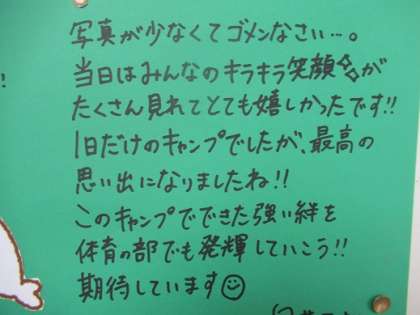 写真が少なくてゴメンなさい…。
当日はみんなのキラキラ笑顔✨が
たくさん見れてとても嬉しかったです!!
1日だけのキャンプでしたが、最高の
思い出になりましたね!!
このキャンプでできた強い絆を
体育の部でも発揮していこう!!
期待しています☺